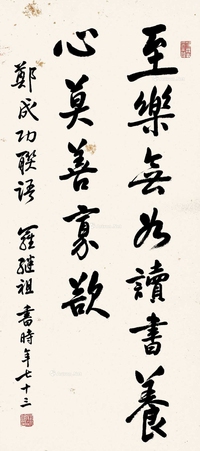 至樂無如讀書養
心莫善寡欲
鄭成功聯語 羅繼祖書時年七十三